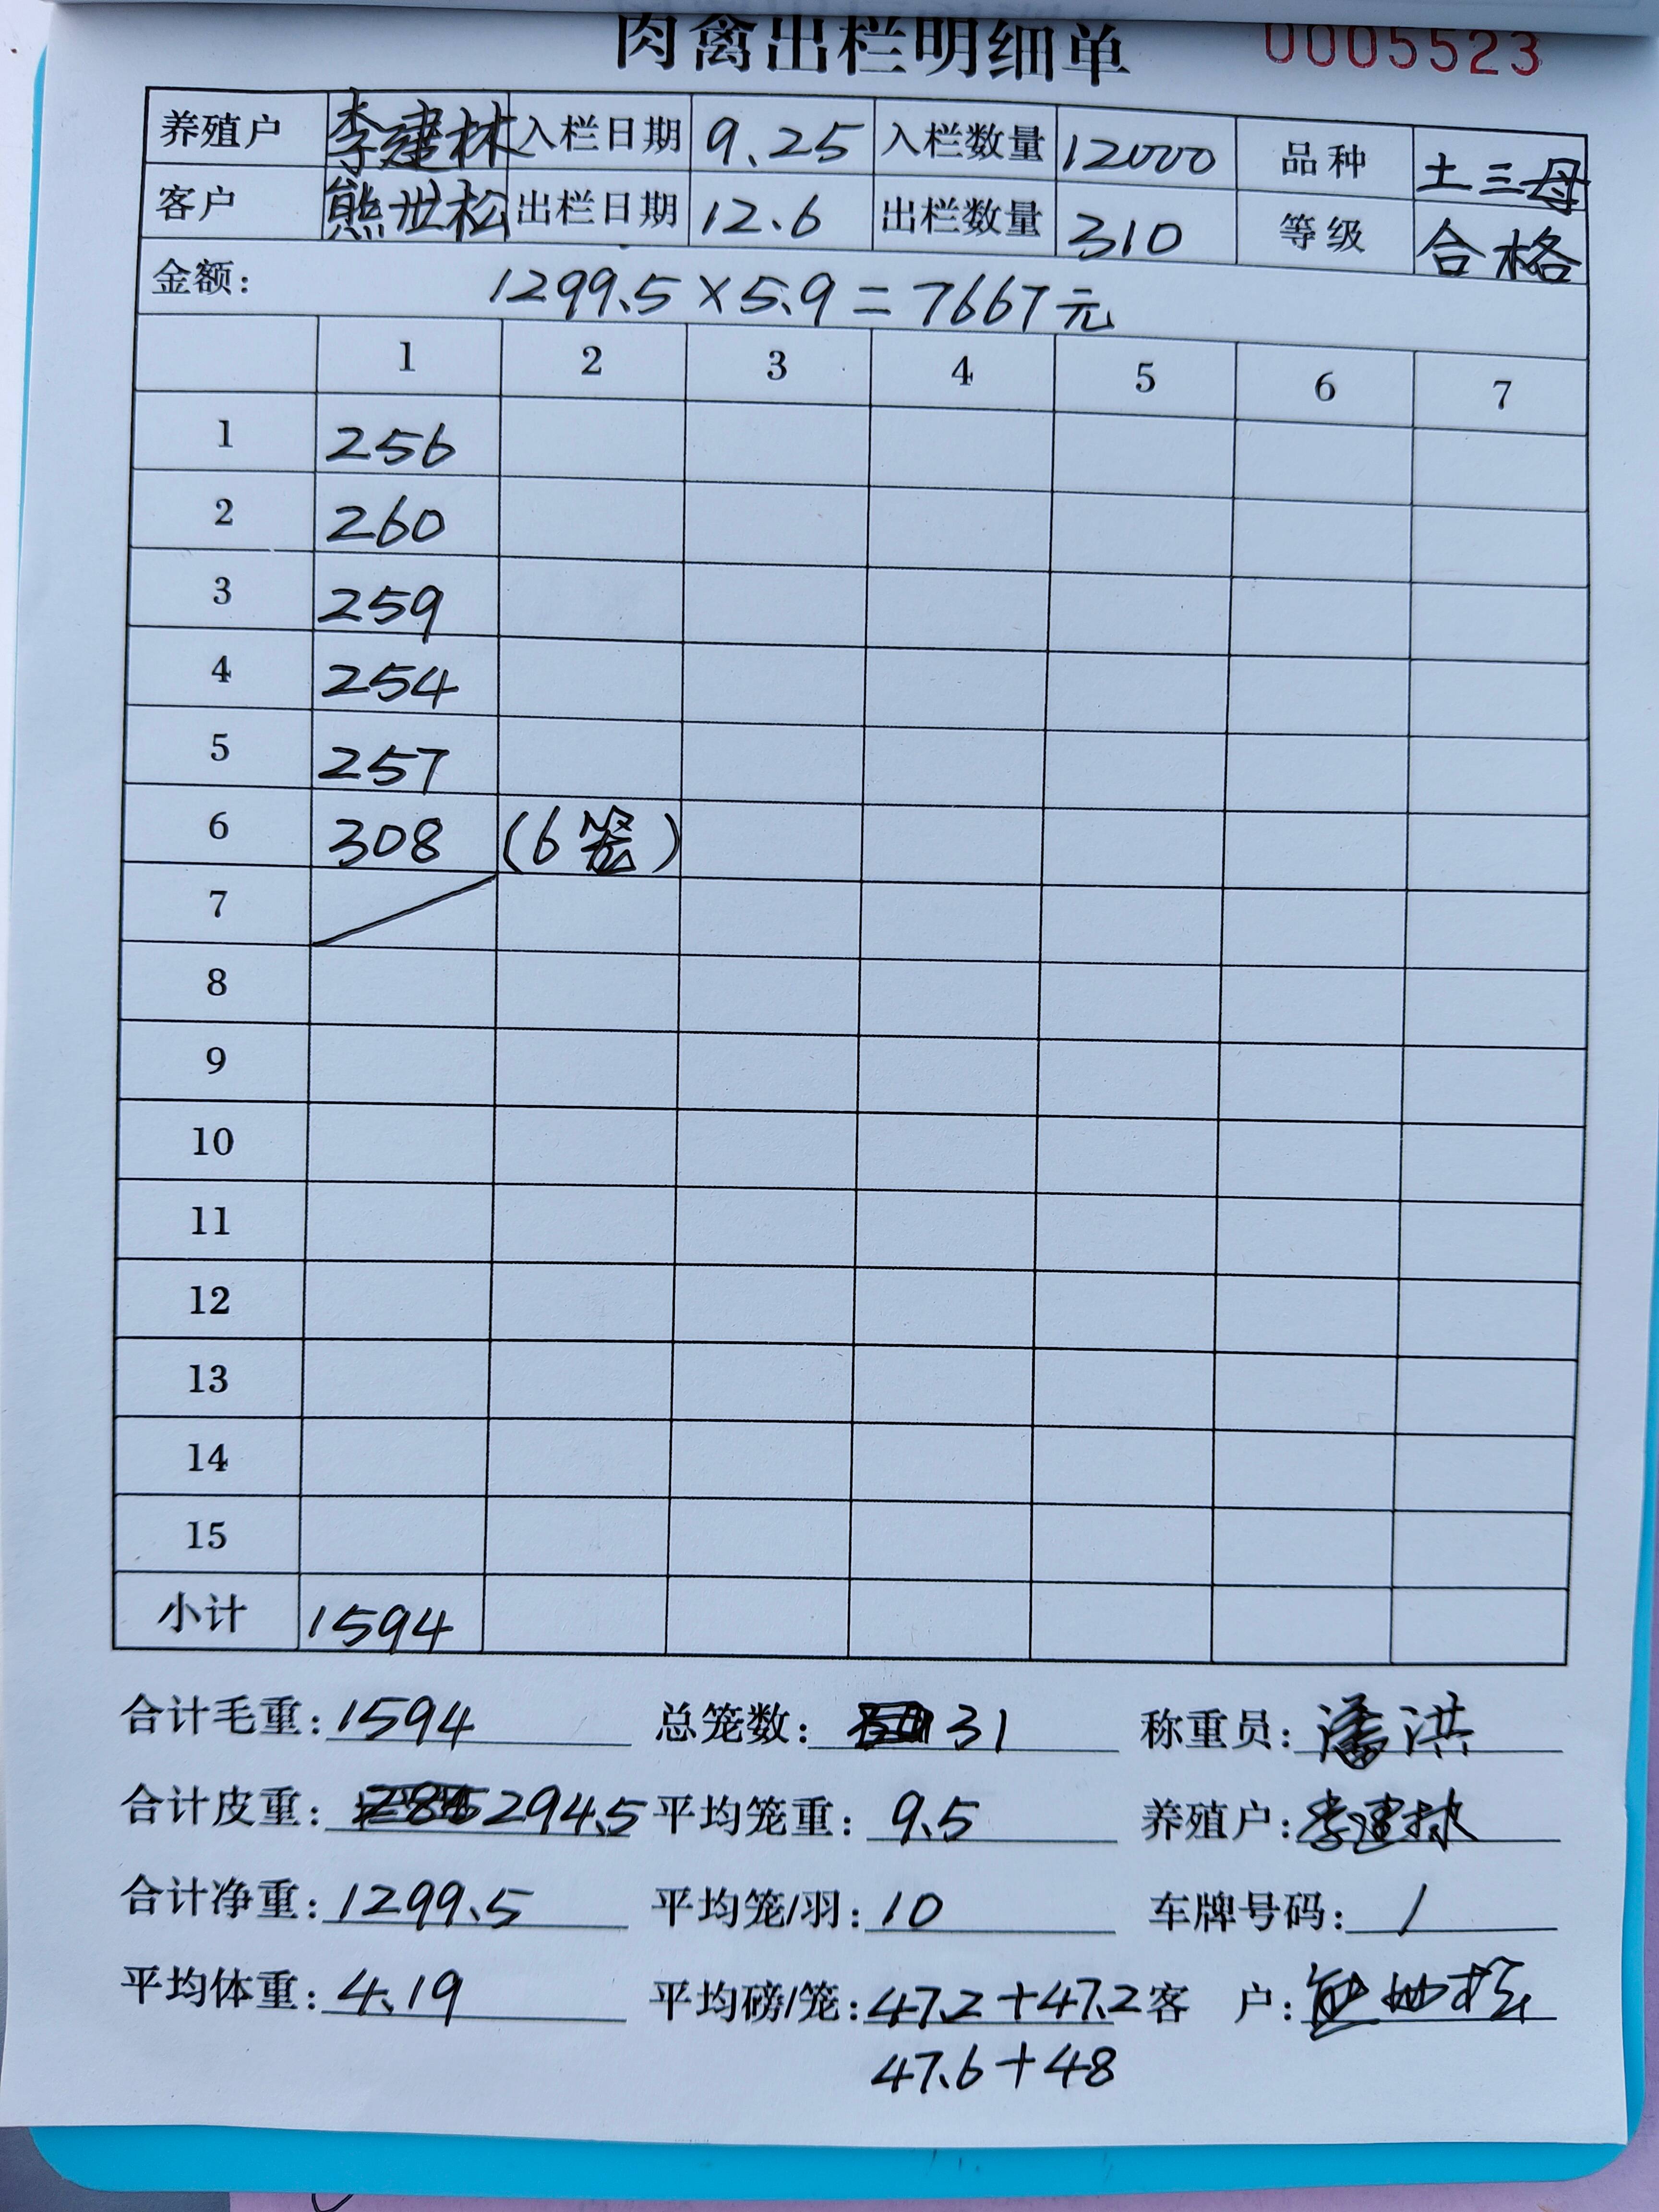 肉禽出栏明细单 0005523
养殖户 李建林 入栏日期 9.25 入栏数量 12000 品种 土三母
客户 熊世松 出栏日期 12.6 出栏数量 310 等级 合格
金额: 1299.5×5.9=7667元
1 2 3 4 5 6 7
1 256
2 260
3 259
4 254
5 257
6 308 (6笼)
7
8
9
10
11
12
13
14
15
小计 1594
合计毛重: 1594 总笼数: 31 称重员: 潘洪
合计皮重: 294.5 平均笼重: 9.5 养殖户: 李建林
合计净重: 1299.5 平均笼/羽: 10 车牌号码: /
平均体重: 4.19 平均磅/笼: 47.2+47.2 客户: 熊世松
47.6+48